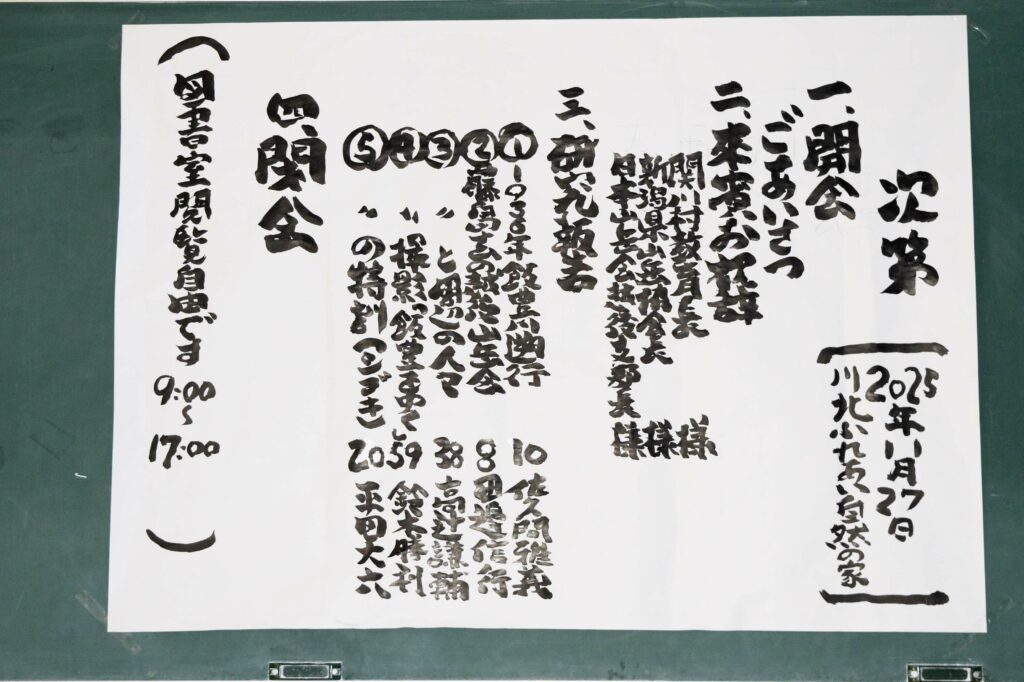 次第
2025年11月27日
川北ふれあい自然の家
一、開会
ごあいさつ
二、来賓お祝辞
関川村教育長 様
新潟県山岳協会長 様
日本山岳会越後支部長 様
三、研究報告
① 一九三〇年飯豊川幽行 10 佐久間雅義
② 藤島玄の越後山岳会 8 田邉信行
③ 〃 と周辺の人々 38 高辻謙輔
④ 〃 撮影「飯豊をゆく」 59 鈴木勝利
⑤ 〃 の特別 20 平田大六
四、閉会
(図書室閲覧自由です 9:00~17:00)